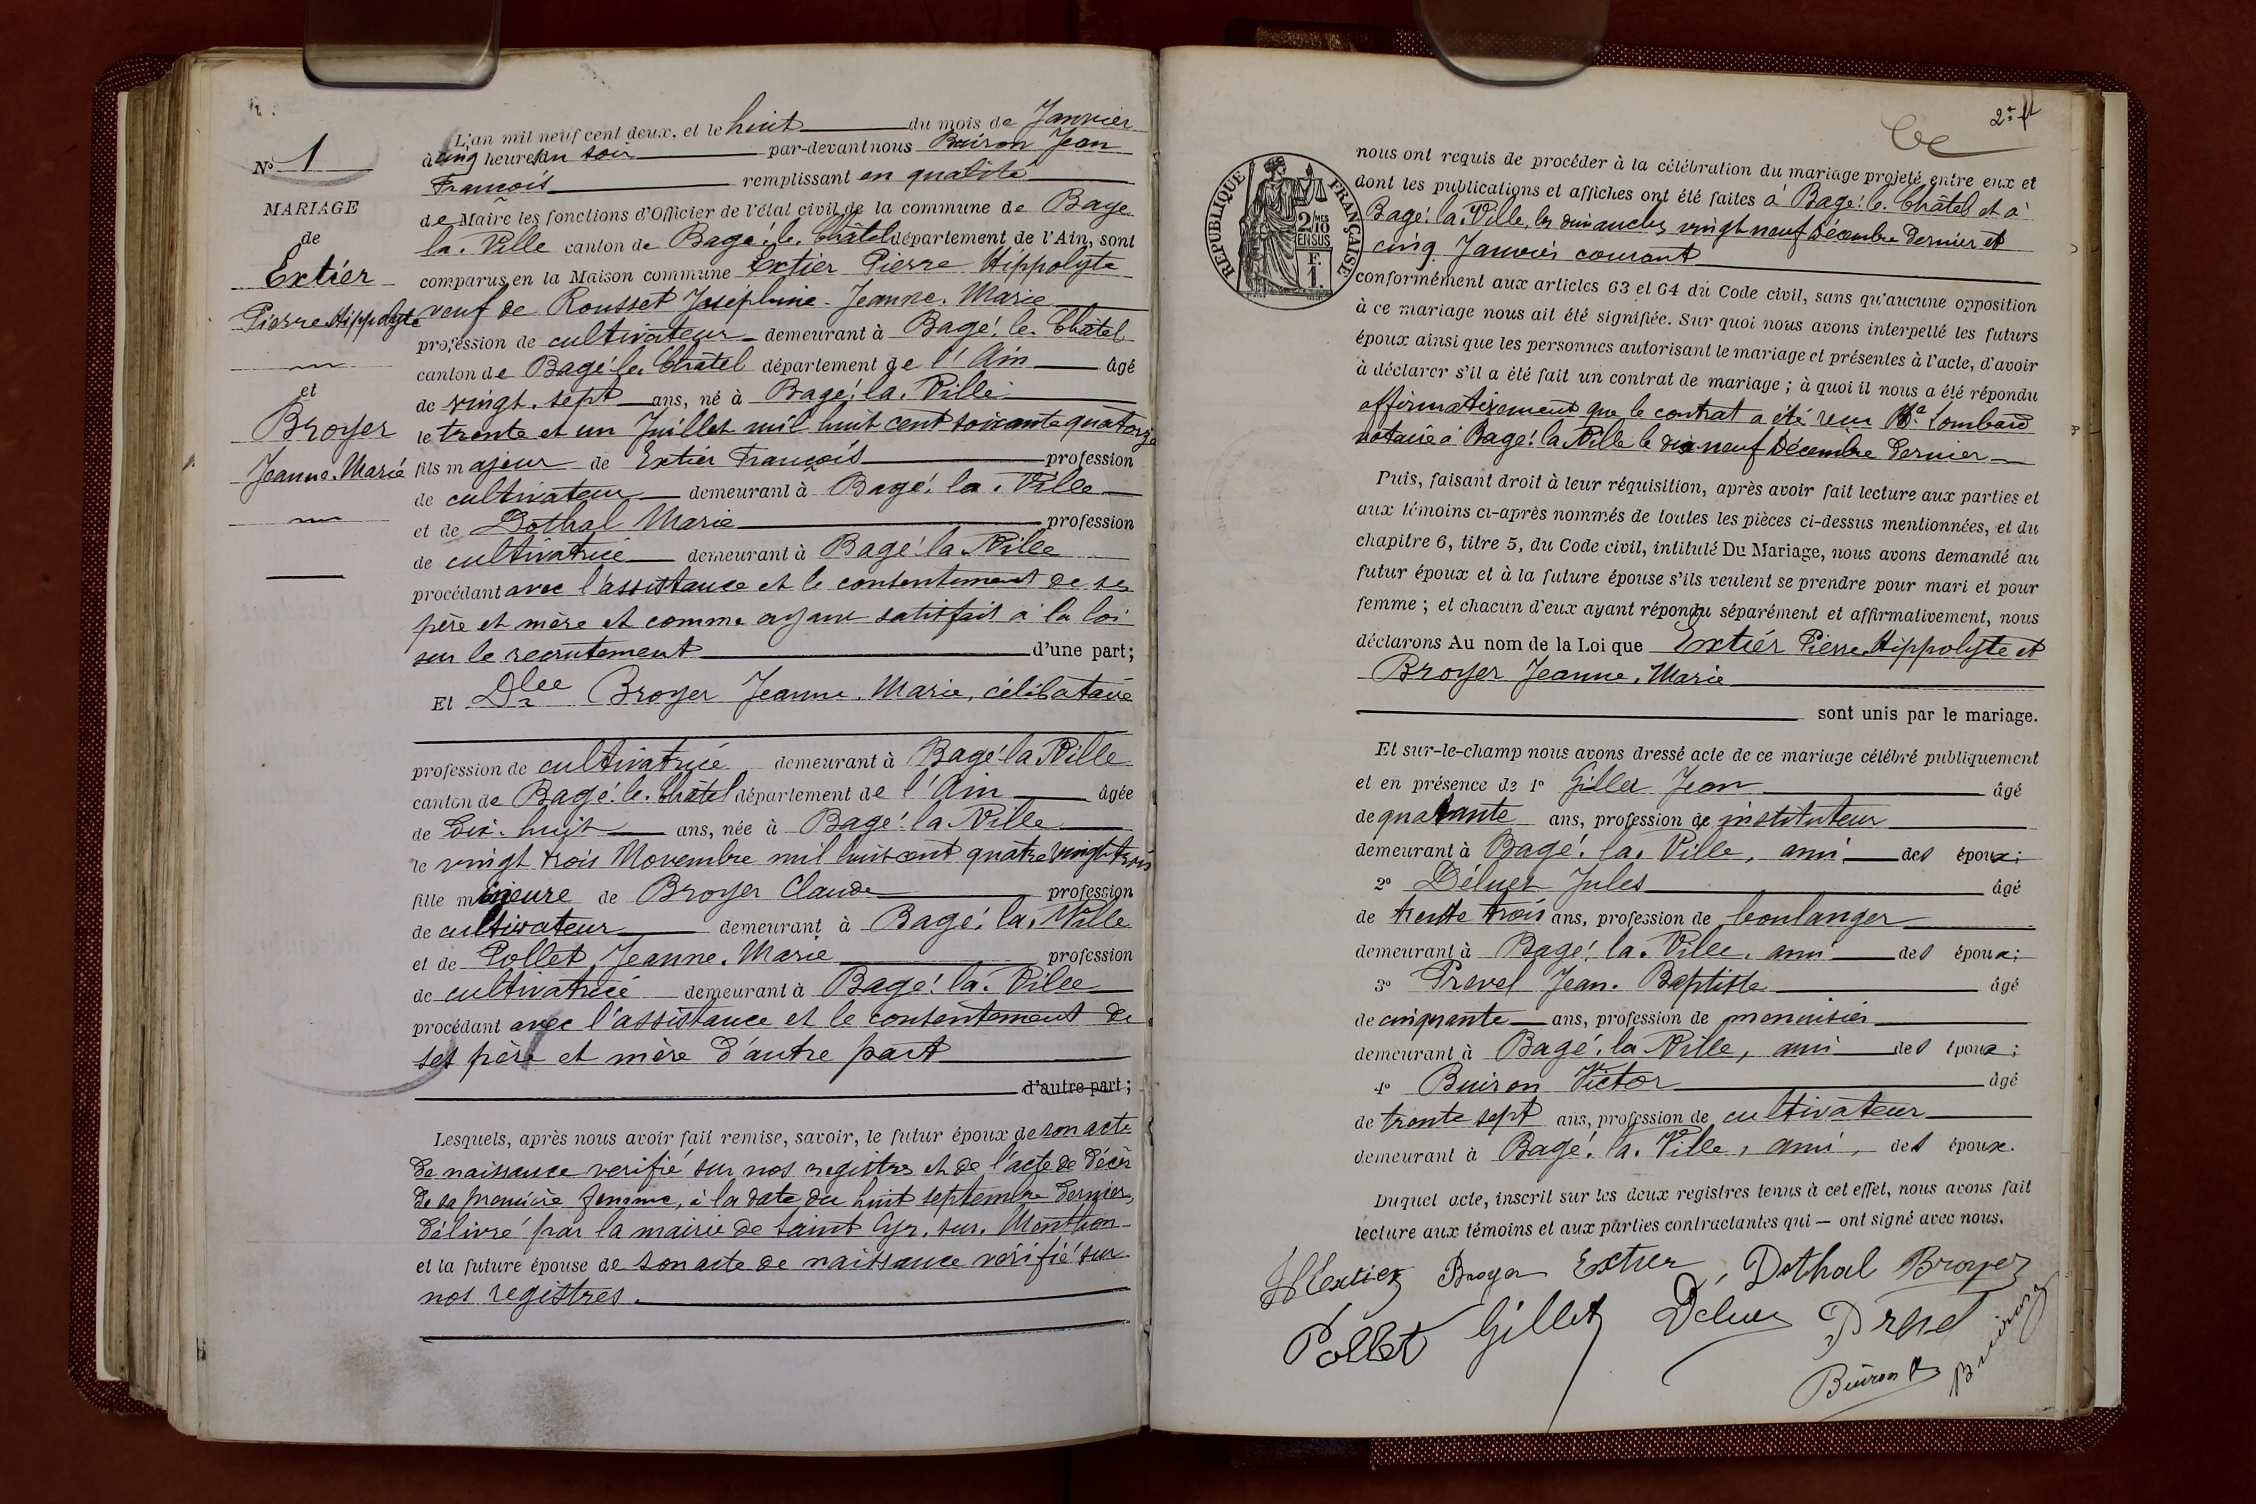 N° 1
MARIAGE
de
Extier
Pierre Hippolyte
et
Broyer
Jeanne. Marie
L'an mil neuf cent deux, et le huit du mois de Janvier
à cinq heures du soir par-devant nous Buiron Jean
François remplissant en qualité
de Maire les fonctions d'Officier de l'état civil de la commune de Bagé
la. Ville canton de Bagé. le. Châtel département de l'Ain, sont
comparus en la Maison commune Extier Pierre Hippolyte
veuf de Rousset Joséphine. Jeanne. Marie
profession de cultivateur demeurant à Bagé. le. Châtel
canton de Bagé le. Châtel département de l'Ain âgé
de vingt. sept ans, né à Bagé. la. Ville
le trente et un Juillet mil huit cent soixante quatorze
fils majeur de Extier François profession
de cultivateur demeurant à Bagé. la. Ville
et de Dothal Marie profession
de cultivatrice demeurant à Bagé. la Ville
procédant avec l'assistance et le consentement de ses
père et mère et comme ayant satisfait à la loi
sur le recrutement d'une part;
Et Dlle Broyer Jeanne. Marie, célibataire
profession de cultivatrice demeurant à Bagé. la Ville
canton de Bagé. le. Châtel département de l'Ain âgée
de Dix. huit ans, née à Bagé. la. Ville
le vingt trois Novembre mil huit cent quatre vingt trois
fille mineure de Broyer Claude profession
de cultivateur demeurant à Bagé. la. Ville
et de Pollet Jeanne. Marie profession
de cultivatrice demeurant à Bagé. la. Ville
procédant avec l'assistance et le consentement de
ses père et mère d'autre part
d'autre part;
Lesquels, après nous avoir fait remise, savoir, le futur époux de son acte
de naissance verifié sur nos registres et de l'acte de décès
de sa première femme, à la date du huit septembre dernier,
délivré par la mairie de Saint Cyr. sur. Menthon
et la future épouse de son acte de naissance vérifié sur
nos registres.
2e ft
RÉPUBLIQUE FRANÇAISE
2/10 MES
EN SUS
F.
1.
nous ont requis de procéder à la célébration du mariage projeté entre eux et
dont les publications et affiches ont été faites à Bagé. le. Châtel et à
Bagé. la. Ville, les dimanches vingt neuf Décembre dernier et
cinq Janvier courant
conformément aux articles 63 et 64 du Code civil, sans qu'aucune opposition
à ce mariage nous ait été signifiée. Sur quoi nous avons interpellé les futurs
époux ainsi que les personnes autorisant le mariage et présentes à l'acte, d'avoir
à déclarer s'il a été fait un contrat de mariage; à quoi il nous a été répondu
affirmativement que le contrat a été reçu Me. Lombard
notaire à Bagé. la Ville le dix. neuf Décembre dernier
Puis, faisant droit à leur réquisition, après avoir fait lecture aux parties et
aux témoins ci-après nommés de toutes les pièces ci-dessus mentionnées, et du
chapitre 6, titre 5, du Code civil, intitulé Du Mariage, nous avons demandé au
futur époux et à la future épouse s'ils veulent se prendre pour mari et pour
femme; et chacun d'eux ayant répondu séparément et affirmativement, nous
déclarons Au nom de la Loi que Extier Pierre. Hippolyte et
Broyer Jeanne. Marie
sont unis par le mariage.
Et sur-le-champ nous avons dressé acte de ce mariage célébré publiquement
et en présence de 1° Gillet Jean âgé
de quarante ans, profession de instituteur
demeurant à Bagé. la. Ville, ami des époux;
2° Déluet Jules âgé
de trente trois ans, profession de boulanger
demeurant à Bagé. la. Ville. ami des époux;
3° Prevel Jean. Baptiste âgé
de cinquante ans, profession de menuisier
demeurant à Bagé. la Ville, ami des époux;
4° Buiron Victor âgé
de trente sept ans, profession de cultivateur
demeurant à Bagé. la. Ville, ami, des époux.
Duquel acte, inscrit sur les deux registres tenus à cet effet, nous avons fait
lecture aux témoins et aux parties contractantes qui — ont signé avec nous.
Broyer Extier Dothal Broyer
Pollet Gillet Prevel
Buiron Buiron